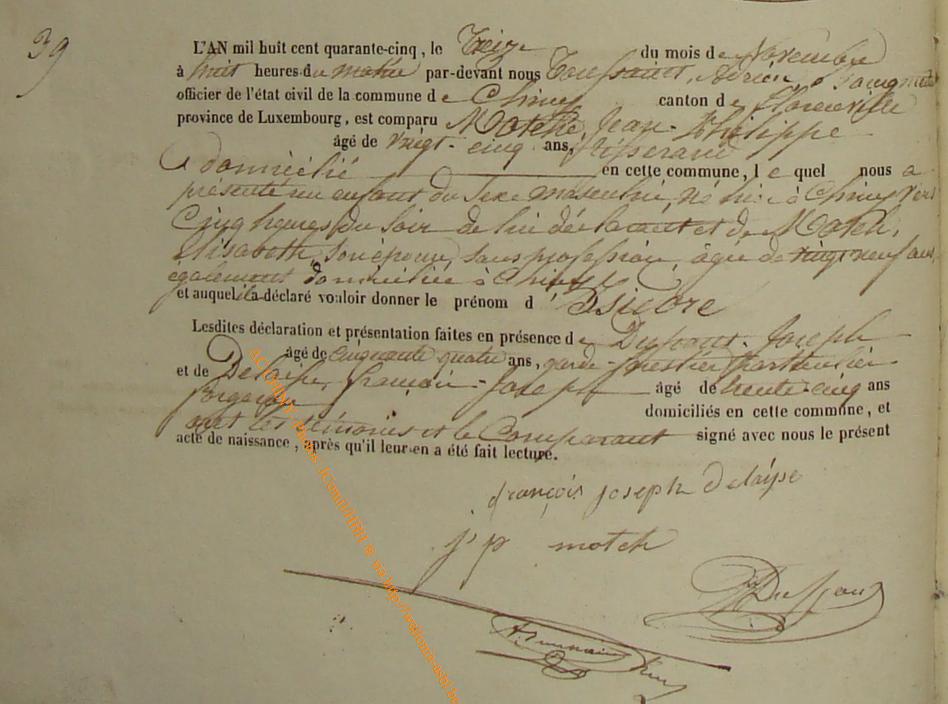 39
L'AN mil huit cent quarante-cinq, le Treize du mois de Novembre
à huit heures du matin par-devant nous Toussaint, Adrien,
officier de l'état civil de la commune de Chiny canton de Florenville
province de Luxembourg, est comparu Motch, Jean-Philippe
âgé de vingt-cinq ans, tisserand
domicilié en cette commune, lequel nous a
présenté un enfant du sexe masculin, né hier à Chiny vers
Cinq heures du soir de lui déclarant et de Motch,
Elisabeth, son épouse, sans profession, âgée de vingt neuf ans,
également domiciliée à Chiny
et auquel il a déclaré vouloir donner le prénom d'Isidore
Lesdites déclaration et présentation faites en présence de Dussart, Joseph
âgé de cinquante quatre ans, garde-forestier particulier
et de Delaise, François-Joseph âgé de trente-cinq ans
domiciliés en cette commune, et
ont les témoins et le Comparant signé avec nous le présent
acte de naissance, après qu'il leur en a été fait lecture.
françois joseph Delaise
j p motch